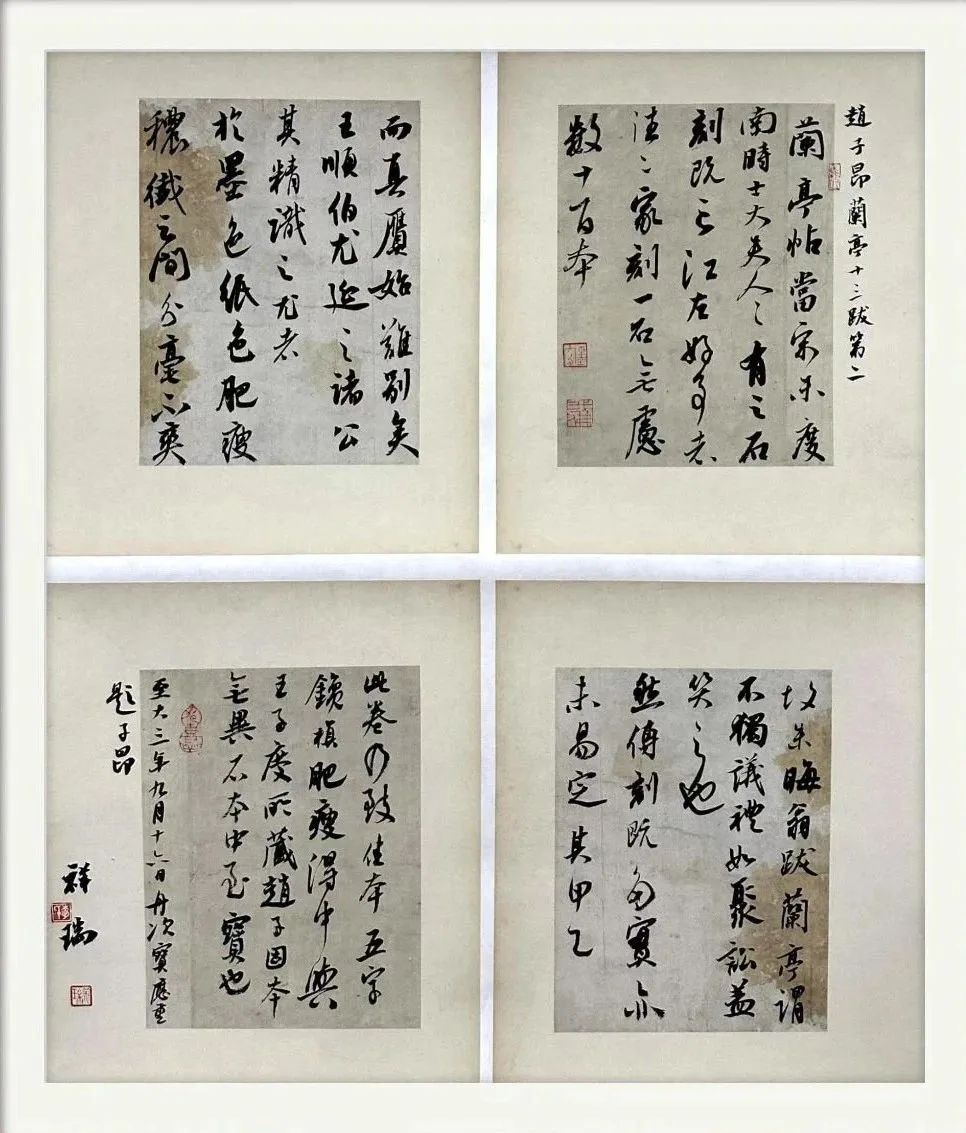 趙子昂蘭亭十三跋第二
蘭亭帖當宋未度
南時士大夫人〻有之石
刻既亡江左好事者
往〻家刻一石無慮
數十百本
而真贋始難別矣
王順伯尤延之諸公
其精識之尤者
於墨色紙色肥瘦
穠纖之間分毫不爽
故朱晦翁跋蘭亭謂
不獨議禮如聚訟蓋
笑之也
然傳刻既多實亦
未易定其甲乙
此卷乃致佳本五字
鑱損肥瘦得中與
王子慶所藏趙子固本
無異石本中至寶也
至大三年九月十六日舟次寶應重
題子昂
祥瑞